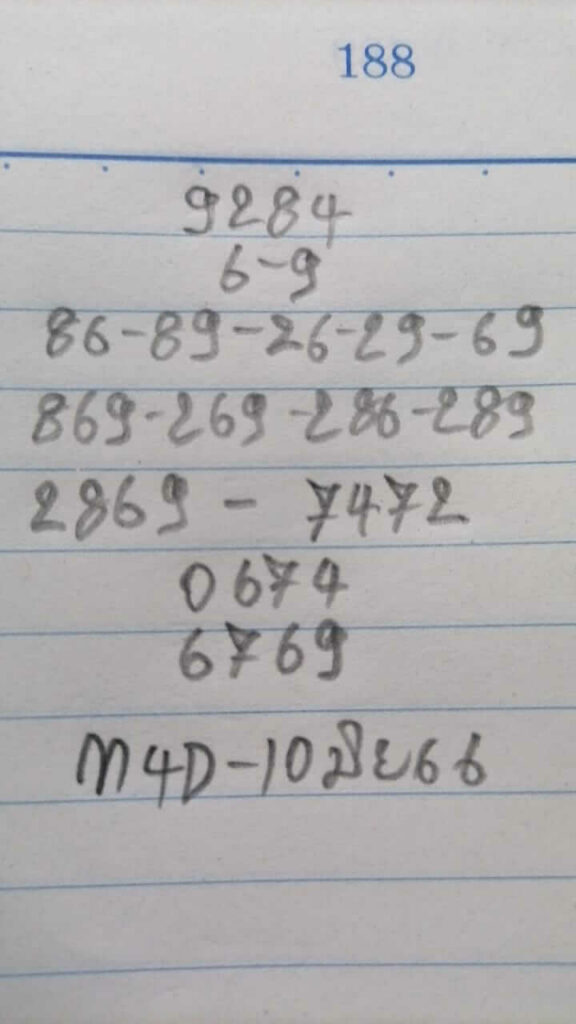 188
9284
6-9
86-89-26-29-69
869-269-286-289
2869 - 7472
0674
6769
M4D-10มิย66